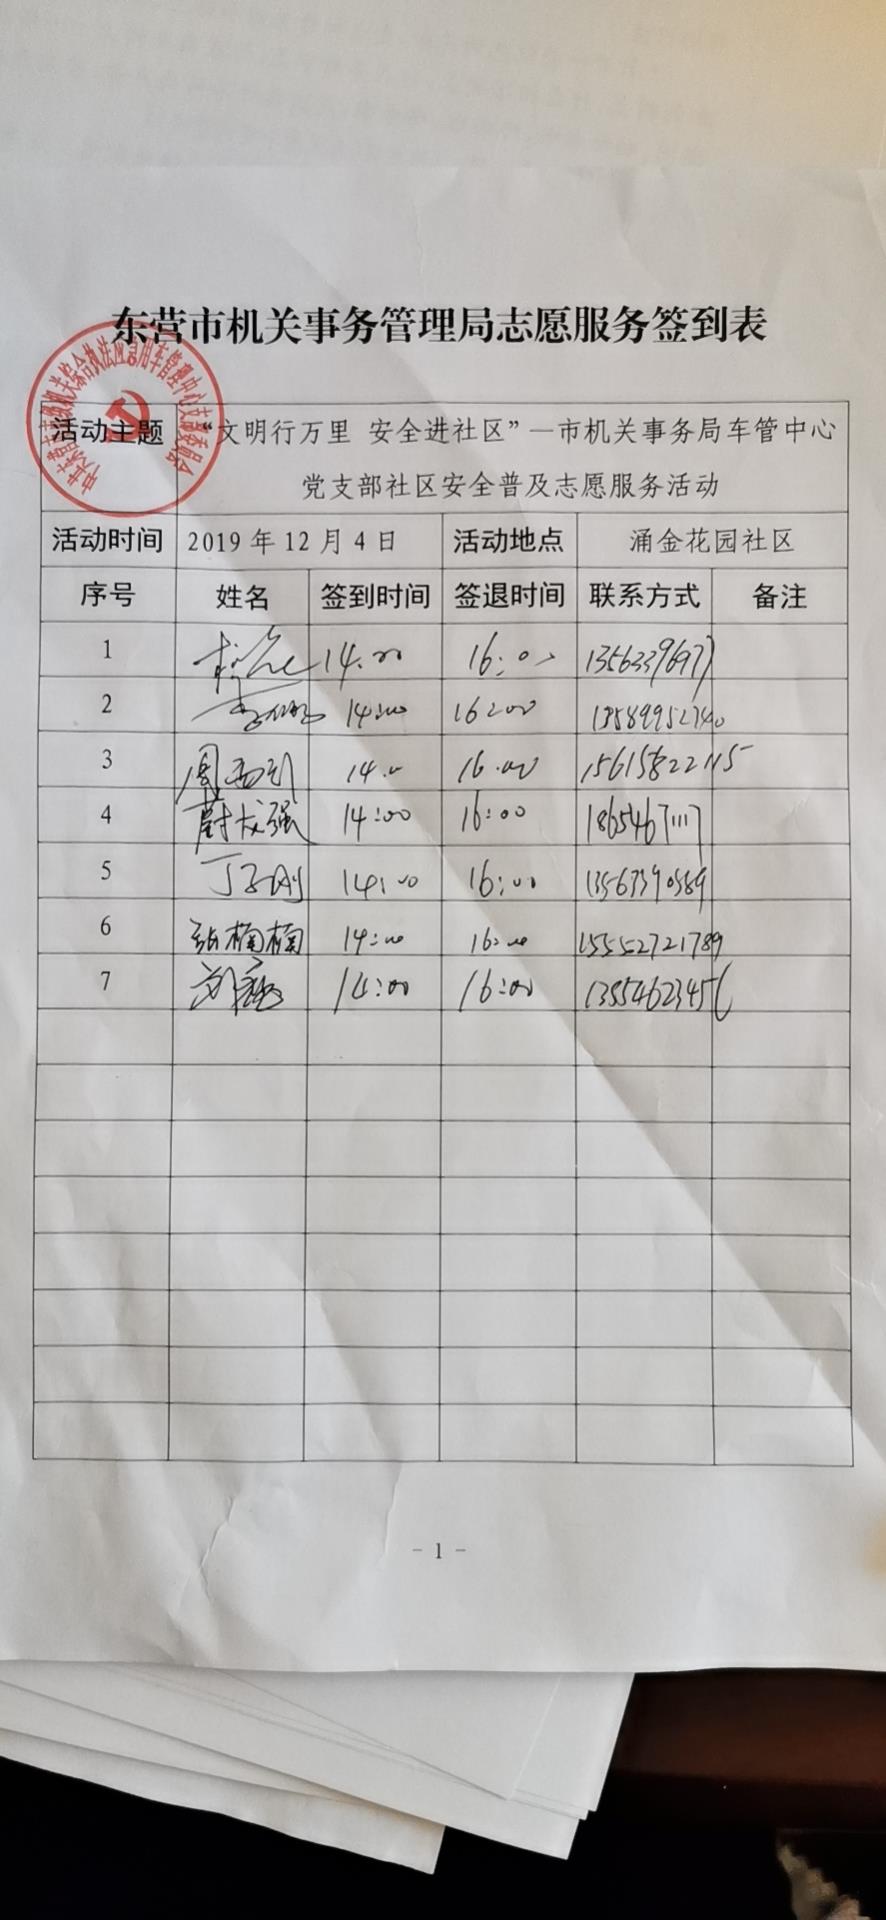 东营市机关事务管理局志愿服务签到表
活动主题 “文明行万里 安全进社区”—市机关事务局车管中心
党支部社区安全普及志愿服务活动
活动时间 2019 年 12 月 4 日 活动地点 涌金花园社区
序号 姓名 签到时间 签退时间 联系方式 备注
1 14:00 16:00 13563396977
2 14:00 16:00 13589952740
3 14:00 16:00 15615822115
4 蔚成强 14:00 16:00 18654671117
5 丁子刚 14:00 16:00 13563390589
6 张楠楠 14:00 16:00 15552721789
7 14:00 16:00 13954623456
- 1 -